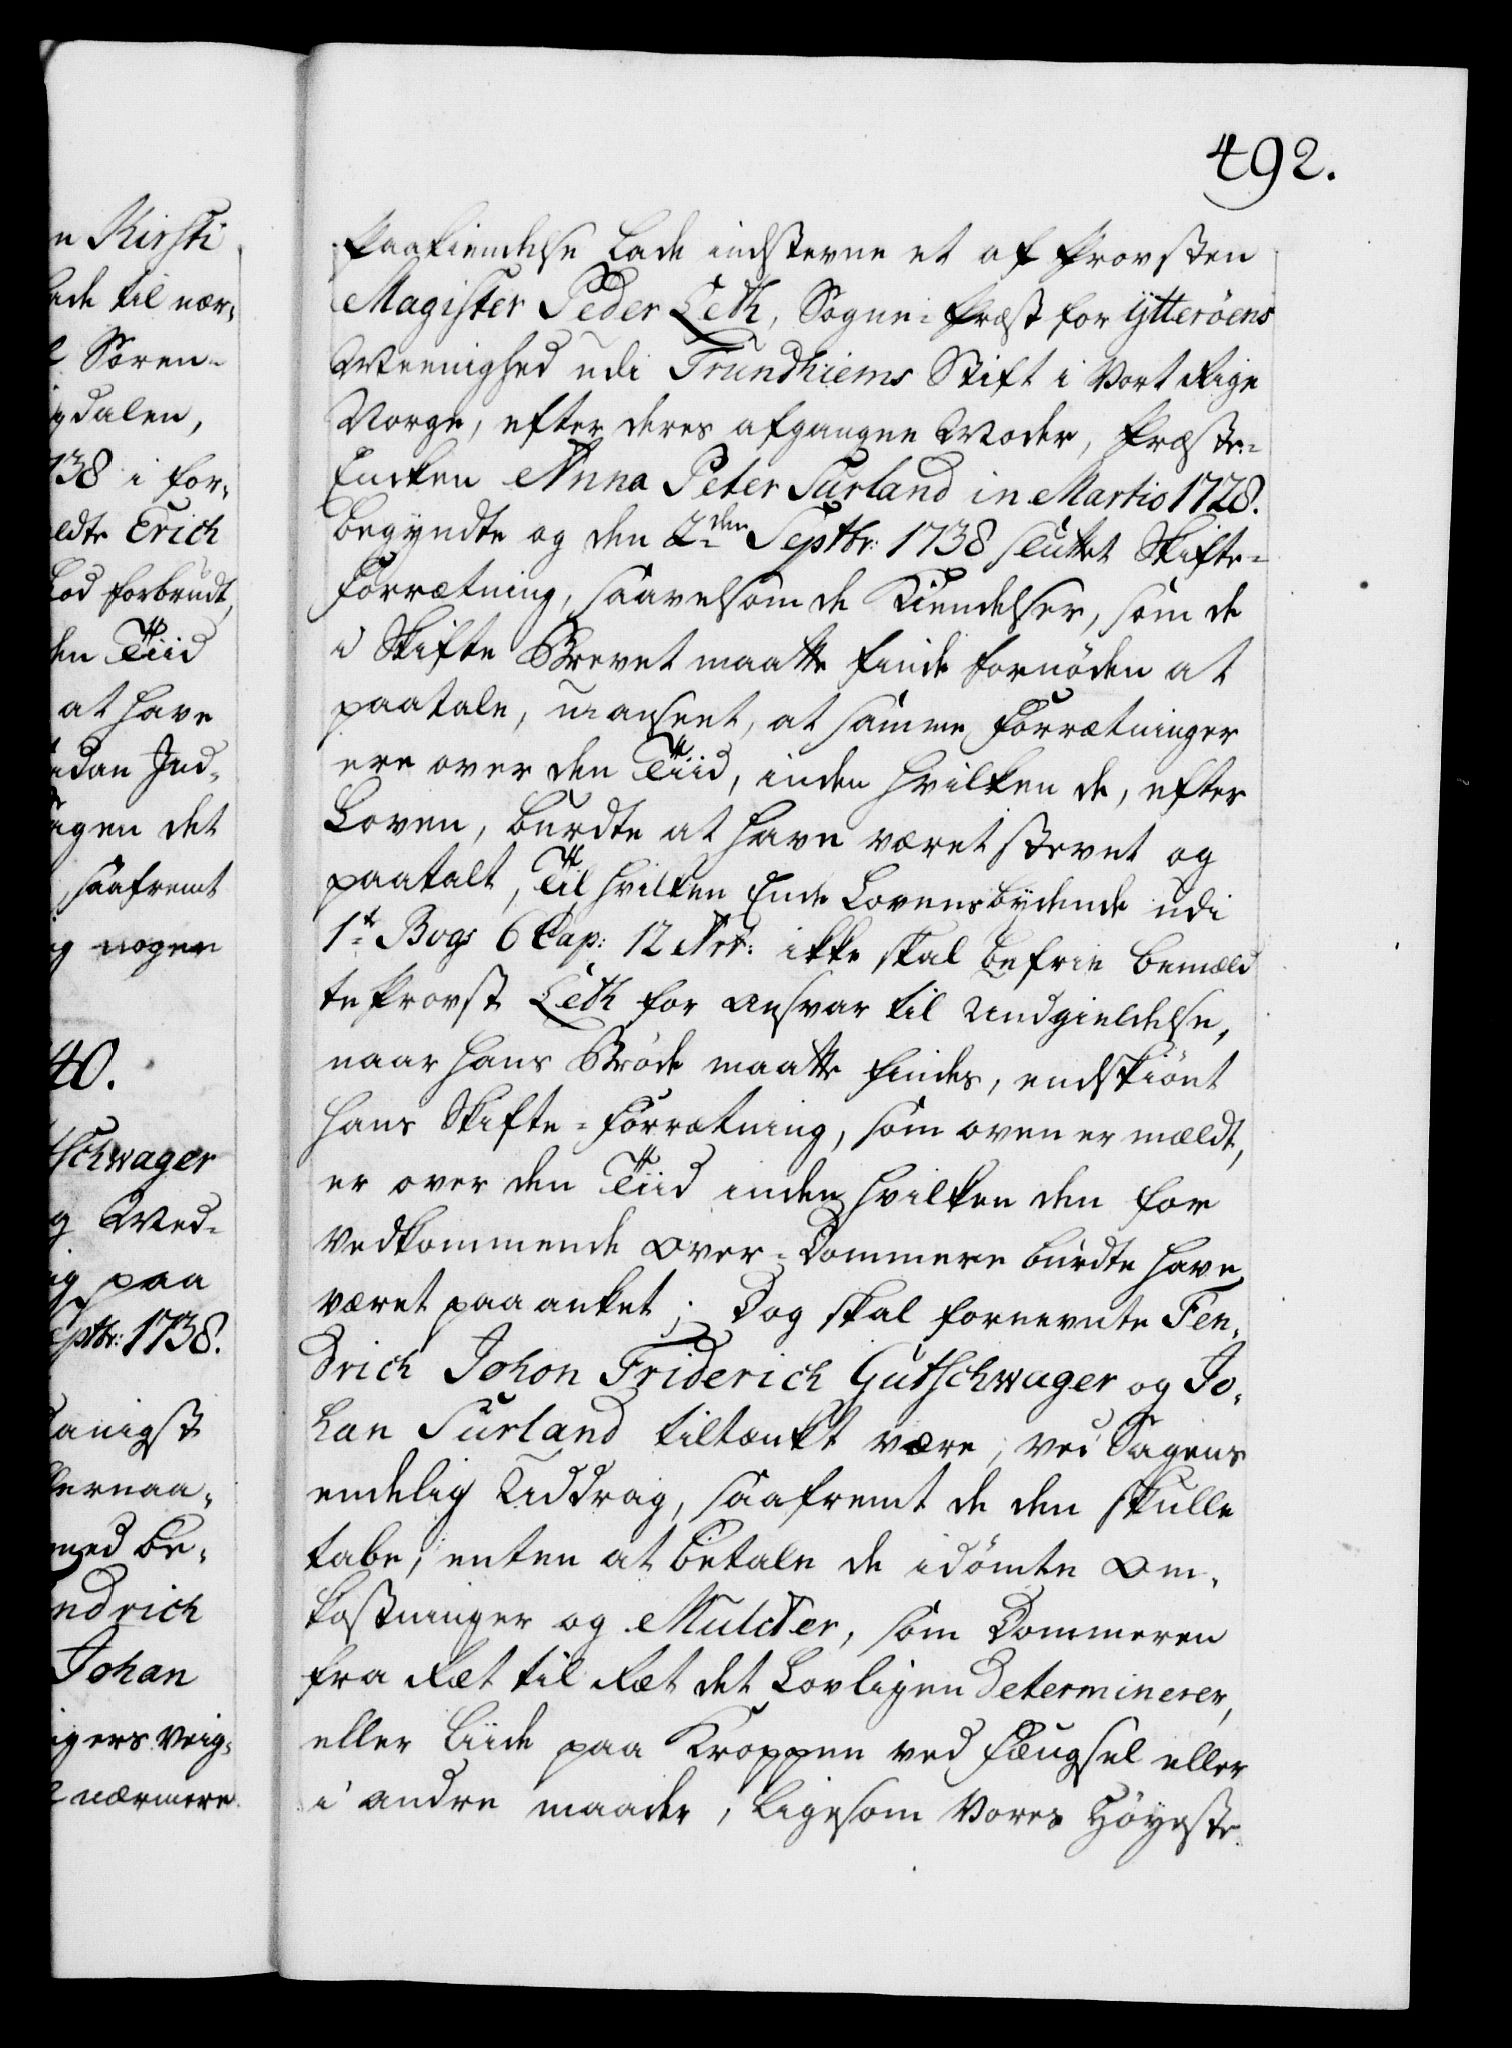 n Kirsti
lade til nær¬
Søren¬
gdalen,
138 i for¬
eldte Erich
Lod forbrudt,
den Tiid
at have
adan Ind¬
agen det
, saafremt
g nogen
40.
tschwager
g Med¬
ng paa
eptbr: 1738.
danigst
llernaa¬
med be¬
ndrich
Johan
igers veig¬
e nærmere
492.
Paakiendelse lade indstevne et af Provsten
Magister Peder Leth, Sogne-Præst for Ytterøens
Meenighed udi Trundhiems Stift i Vort Rige
Norge, efter deres afgangne Moder, Præste¬
Encken Anna Peter Surland in Martio 1728.
begyndte og den 2den Septbr: 1738 sluttet Skifte¬
Forretning, saavelsom de Kiendelser, som de
i Skifte Brevet maatte finde fornøden at
paatale, uanseet, at samme Forretninger
ere over den Tiid, inden hvilken de, efter
Loven, burdte at have været stevnet og
paatalt, Til hvilken Ende Lovens bydende udi
1st Bogs 6 Cap: 12 Art: ikke skal befrie bemeld
te Provst Leth for Ansvar til Undgieldelse,
naar hans Brøde maatte findes, endskiönt
hans Skifte-Forretning, som oven er meldt,
er over den Tiid inden hvilken den for
vedkommende Over-Dommere burdte have
været paaanket; Dog skal fornevnte Fen¬
drich Johon Friderich Gutschwager og Jo¬
han Surland tiltænkt være, ved Sagens
endelig Uddrag, saafremt de den skulle
tabe, enten at betale de idömte Om¬
kostninger og Mulcter, som Dommeren
fra Ret til Ret det Lovligen determinerer,
eller liide paa Kroppen ved Fængsel eller
i andre maader, ligesom Vores Höyeste